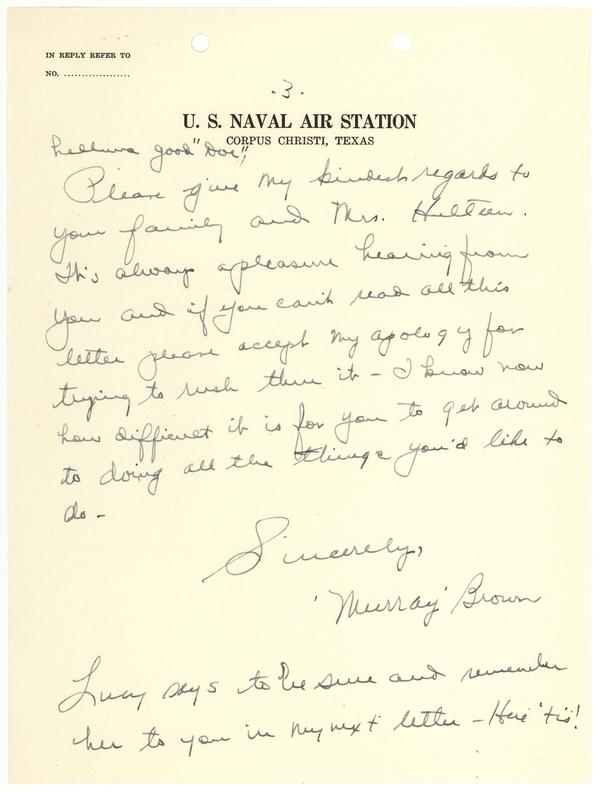 IN REPLY REFER TO
NO. ...................
-3-
U. S. NAVAL AIR STATION
CORPUS CHRISTI, TEXAS
helluva good "Doc".
Please give my kindest regards to
your family and Mrs. Hulteen.
It's always a pleasure hearing from
you and if you can't read all this
letter please accept my apology for
trying to rush thru it - I know now
how difficult it is for you to get around
to doing all the things you'd like to
do -
Sincerely,
'Murray' Brown
Lucy says to be sure and remember
her to you in my next letter - Here 'tis!